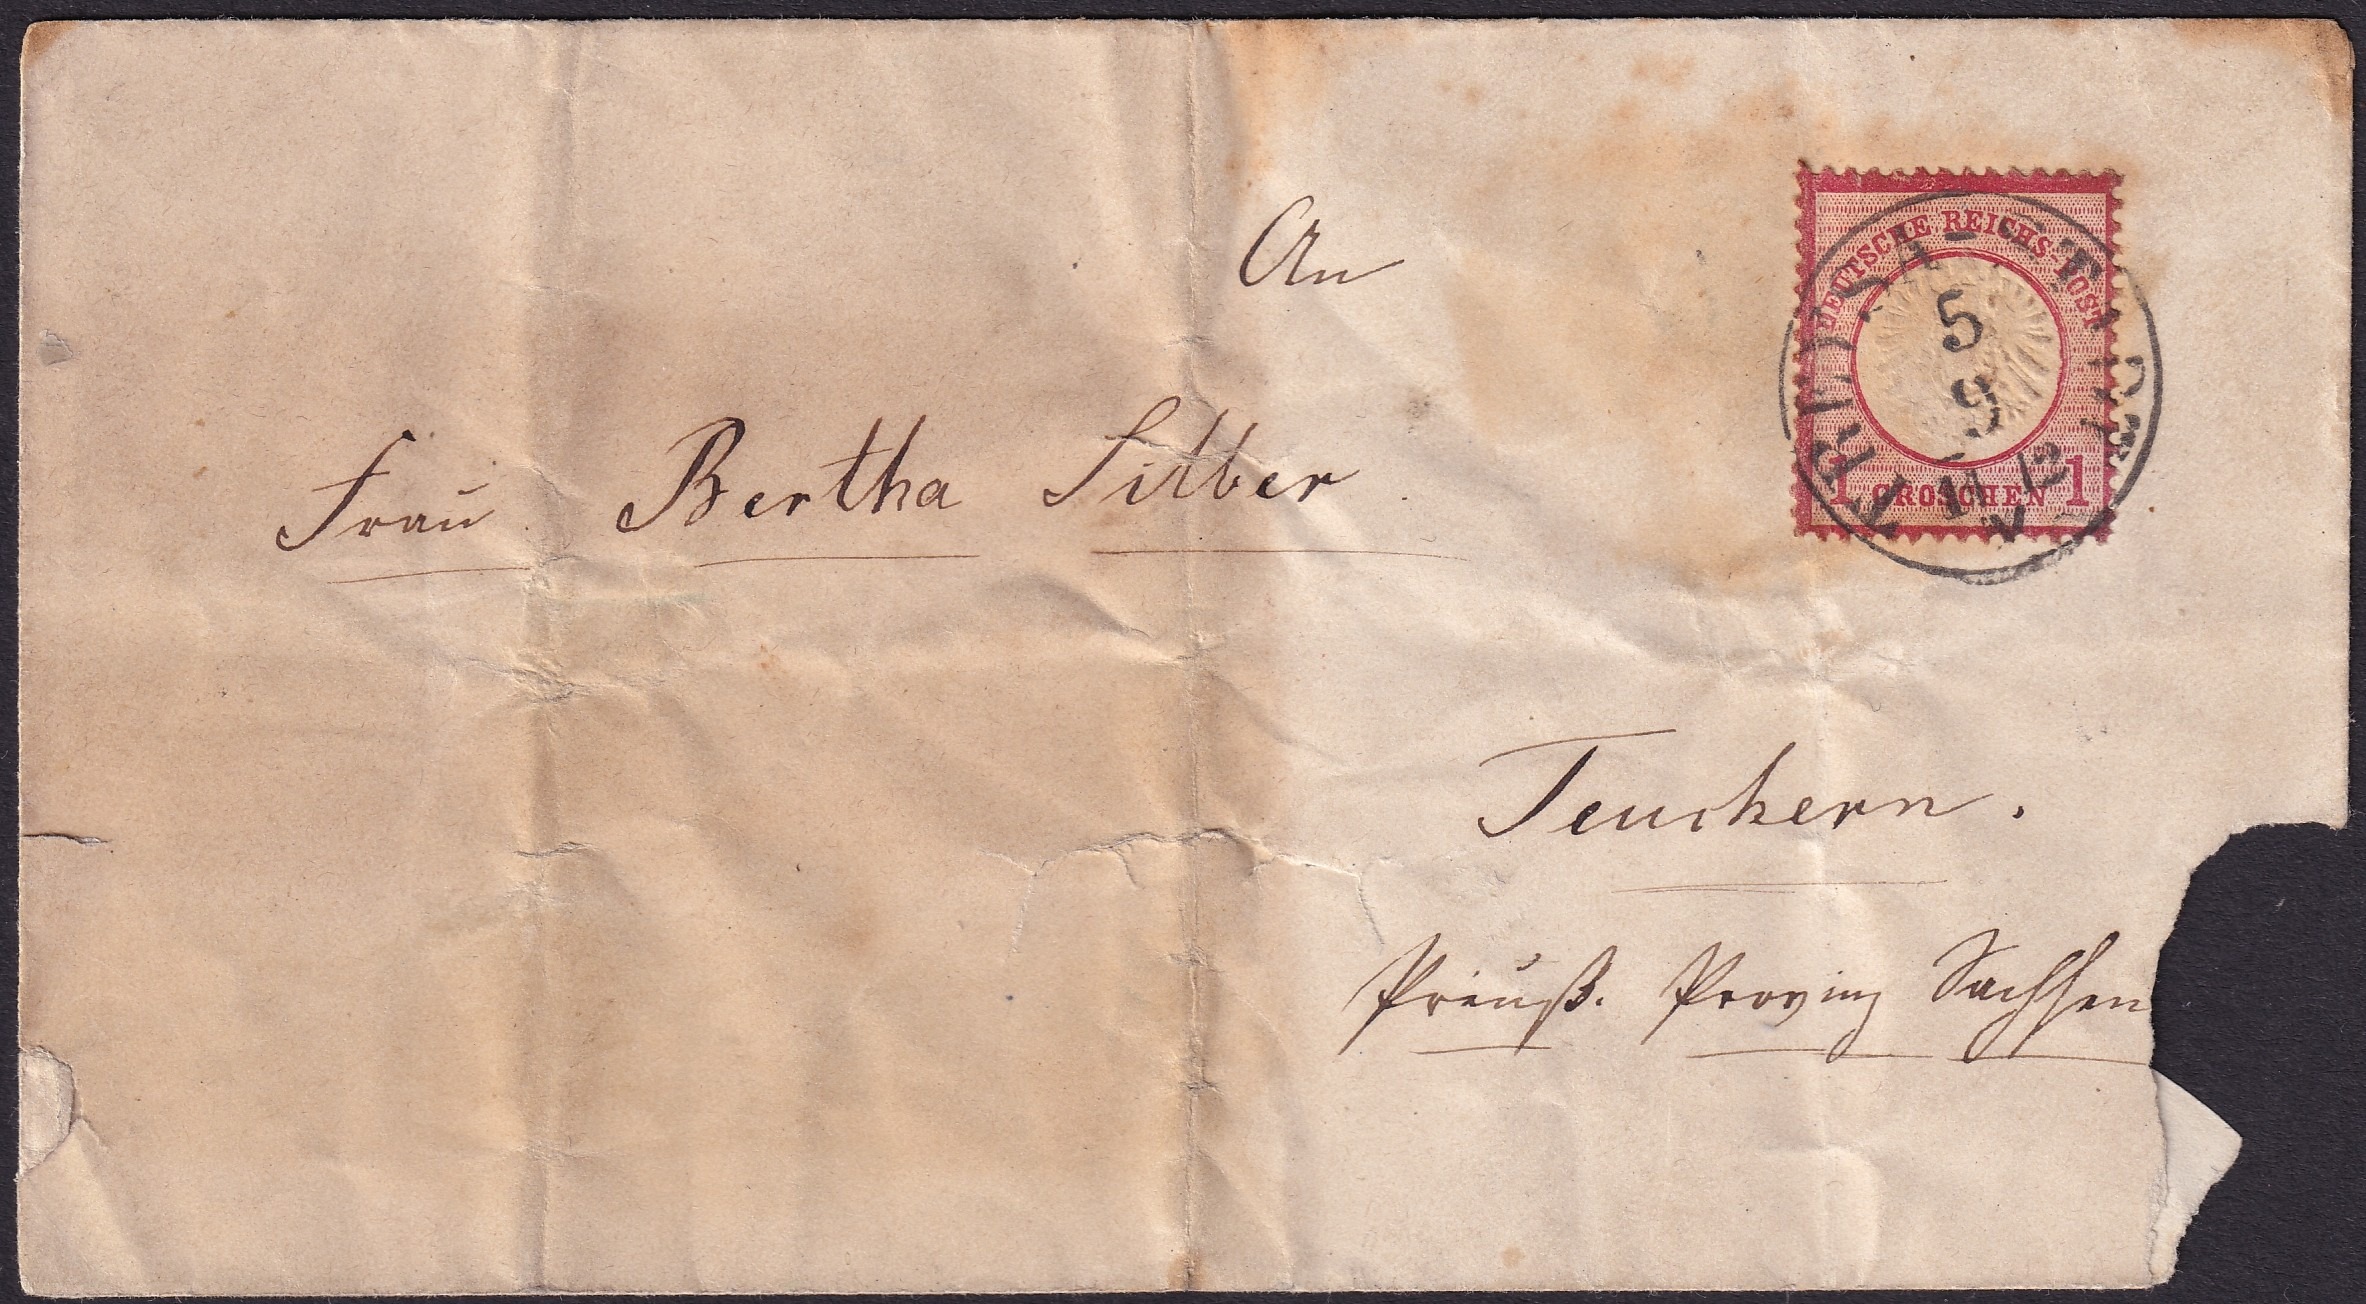 An
DEUTSCHE REICHS-POST
5
9
11-12
V
1 GROSCHEN 1
Frau Bertha Silber.
Teuchern.
Preuß. Provinz Sachsen